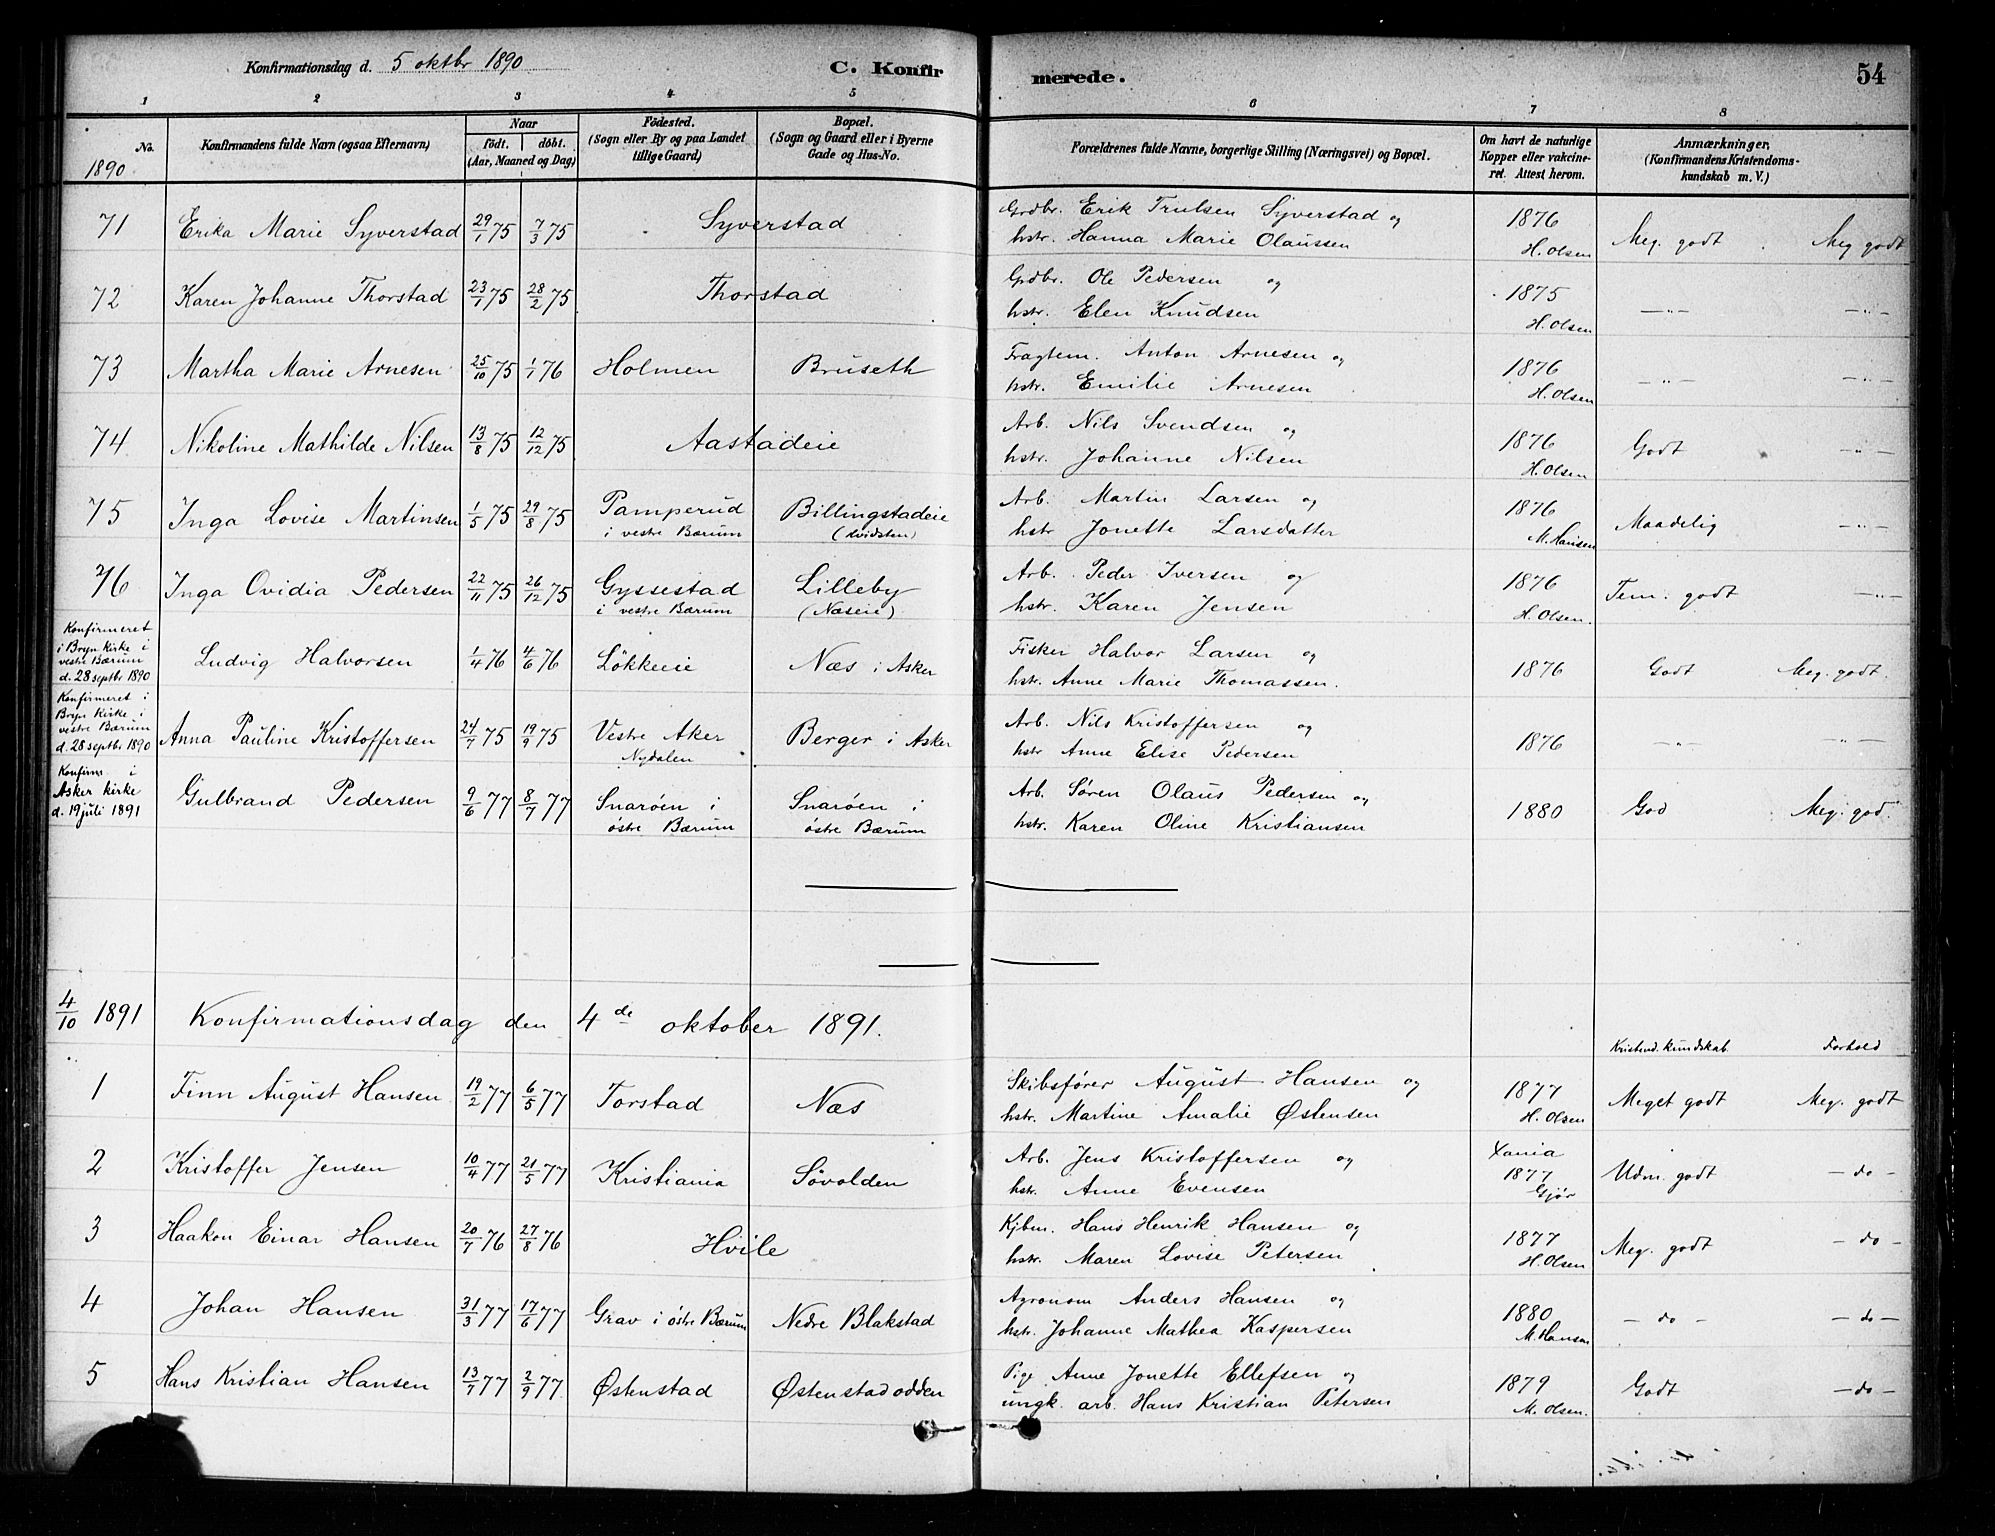 Konfirmationsdag d. 5 oktbr 1890 C. Konfir merede. 54
1 2 3 4 5 6 7 8
No. Konfirmandens fulde Navn (ogsaa Efternavn) Naar födt. döbt. (Aar, Maaned og Dag) Födested. (Sogn eller By og paa Landet tillige Gaard) Bopæl. (Sogn og Gaard eller i Byerne Gade og Hus-No. Forældrenes fulde Navne, borgerlige Stilling (Næringsvei) og Bopæl. Om havt de naturlige Kopper eller vakcineret. Attest herom. Anmærkninger, (Konfirmandens Kristendomskundskab m. V.)
1890
71 Erika Marie Syverstad 29/1 75 7/3 75 Syverstad Grdbr. Erik Trulsen Syverstad og 1876 Meg. godt Meg godt
hstr. Hanna Marie Olaussen H. Olsen
72 Karen Johanne Thorstad 23/1 75 28/2 75 Thorstad Grdbr. Ole Pedersen og 1875 — „ — — „ —
hstr. Elen Knudsen H. Olsen
73 Martha Marie Arnesen 25/10 75 1/1 76 Holmen Bruseth Fragtem. Anton Arnesen og 1876 — „ — — „ —
hstr. Emilie Arnesen H. Olsen
74 Nikoline Mathilde Nilsen 13/8 75 12/12 75 Aastadeie Arb. Nils Svendsen og 1876 Godt — „ —
hstr. Johanne Nilsen H. Olsen
75 Inga Lovise Martinsen 1/5 75 29/8 75 Pamperud Billingstadeie Arb. Martin Larsen og 1876 Maadelig — „ —
i vestre Bærum (Kvidsten) hstr Jonette Larsdatter M. Hansen
76 Inga Ovidia Pedersen 22/11 75 26/12 75 Gyssestad Lilleby Arb. Peder Iversen og 1876 Tem. godt — „ —
i vestre Bærum (Næseie) hstr. Karen Jensen H. Olsen.
Konfirmeret
i Bryn kirke i
vestre Bærum
d. 28 septbr 1890
Ludvig Halvorsen 1/4 76 4/6 76 Løkkeeie Næs i Asker Fisker Halvor Larsen og 1876 Godt Meg. godt.
hstr. Anne Marie Thomassen.
Konfirmeret i
Bryn kirke i
vestre Bærum
d. 28 septbr 1890
Anna Pauline Kristoffersen 24/7 75 19/9 75 Vestre Aker Berger i Asker Arb. Nils Kristoffersen og 1876 — „ — — „ —
Nydalen hstr Anne Elise Pedersen
Konfirm. i
Asker kirke
d. 19 juli 1891
Gulbrand Pedersen 9/6 77 8/7 77 Snarøen i Snarøen i Arb. Søren Olaus Pedersen og 1880 God Meg. god.
østre Bærum østre Bærum hstr. Karen Oline Kristiansen
4/10 1891 Konfirmationsdag den 4de oktober 1891.
Kristend. kundskab. Forhold
1 Finn August Hansen 19/2 77 6/5 77 Torstad Næs Skibsfører August Hansen og 1877 Meget godt Meg. godt
hstr. Martine Amalie Østensen H. Olsen
2 Kristoffer Jensen 10/4 77 21/5 77 Kristiania Søvolden Arb. Jens Kristoffersen og Xania 1877 Udm. godt — do —
hstr. Anne Evensen Gjør
3 Haakon Einar Hansen 20/7 76 27/8 76 Hvile Kjbm. Hans Henrik Hansen og 1877 Meg. godt — do —
hstr. Maren Lovise Petersen H. Olsen
4 Johan Hansen 31/3 77 17/6 77 Grav i østre Bærum Nedre Blakstad Agronom Anders Hansen og 1880 — do — — do —
hstr. Johanne Mathea Kaspersen M. Hansen
5 Hans Kristian Hansen 13/7 77 2/9 77 Østenstad Østenstadodden Pige Anne Jonette Ellefsen og 1879 Godt — do —
ungk. arb. Hans Kristian Petersen M. Olsen.